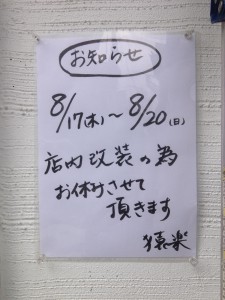 お知らせ
8/17(木)〜8/20(日)
店内改装の為
お休みさせて
頂きます
猿楽